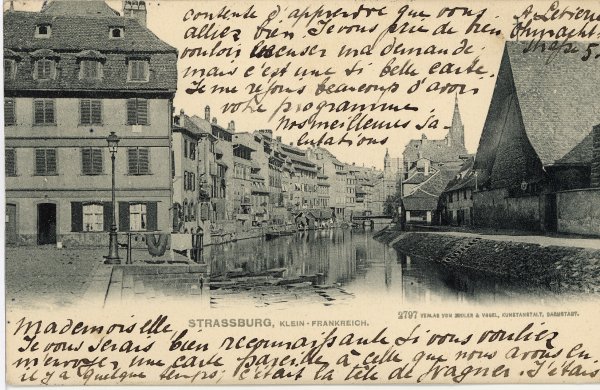 contente d'apprendre que vous
allez bien. Je vous prie de bien
vouloir excuser ma demande
mais c'est une si belle carte.
Je me rejous beaucoup d'avoir
votre programme
Nos meilleures sa
lutations
A. Letierce
Ohmacht-
strasse 5.
STRASSBURG, KLEIN-FRANKREICH.
2797 VERLAG VON ZEDLER & VOGEL, KUNSTANSTALT, DARMSTADT.
Mademoiselle
Je vous serais bien reconnaissante si vous vouliez
m'envoyez une carte pareille à celle que nous avons eu
il y a quelque temps; c'était la tête de Wagner. J'étais